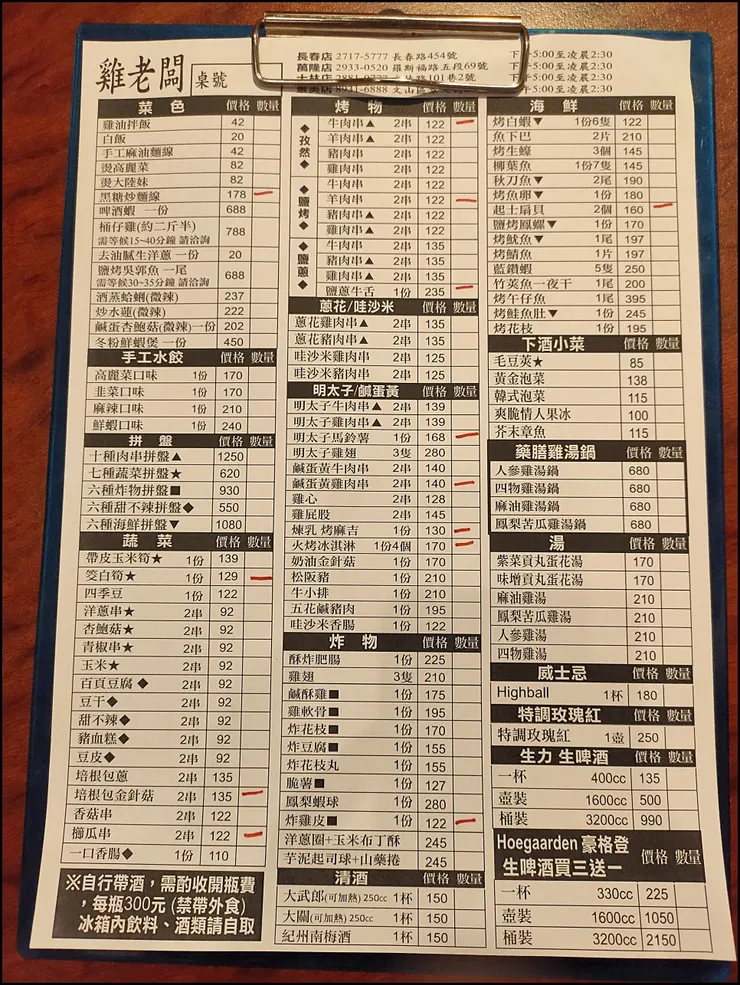 雞老闆 桌號
長春店 2717-5777 長春路454號 下午5:00至凌晨2:30
萬隆店 2933-0520 羅斯福路五段69號 下午5:00至凌晨2:30
士林店 2881-0777 101巷2號 5:00至凌晨2:30
景美店 8931-6888 文山區 5:00至凌晨2:30
菜 色 價格 數量
雞油拌飯 42
白飯 20
手工麻油麵線 42
燙高麗菜 82
燙大陸妹 82
黑糖炒麵線 178
啤酒蝦 一份 688
桶仔雞(約二斤半) 788
需等候15~40分鐘 請洽詢
去油膩生洋蔥 一份 20
鹽烤吳郭魚 一尾 688
需等候30~35分鐘 請洽詢
酒蒸蛤蜊(微辣) 237
炒水蓮(微辣) 222
鹹蛋杏鮑菇(微辣)一份 202
冬粉鮮蝦煲 一份 450
手工水餃 價格 數量
高麗菜口味 1份 170
韭菜口味 1份 170
麻辣口味 1份 210
鮮蝦口味 1份 240
拼 盤 價格 數量
十種肉串拼盤▲ 1250
七種蔬菜拼盤★ 620
六種炸物拼盤■ 930
六種甜不辣拼盤◆ 550
六種海鮮拼盤▼ 1080
蔬 菜 價格 數量
帶皮玉米筍★ 1份 139
筊白筍★ 1份 129
四季豆 1份 122
洋蔥串★ 2串 92
杏鮑菇★ 2串 92
青椒串★ 2串 92
玉米★ 2串 92
百頁豆腐◆ 2串 92
豆干◆ 2串 92
甜不辣◆ 2串 92
豬血糕◆ 2串 92
豆皮◆ 2串 92
培根包蔥 2串 135
培根包金針菇 2串 135
香菇串 2串 122
櫛瓜串 2串 122
一口香腸◆ 1份 110
※自行帶酒，需酌收開瓶費
，每瓶300元 (禁帶外食)
冰箱內飲料、酒類請自取
烤 物 價格 數量
◆孜然◆
牛肉串▲ 2串 122
羊肉串▲ 2串 122
豬肉串 2串 122
雞肉串 2串 122
◆鹽烤◆
牛肉串 2串 122
羊肉串 2串 122
豬肉串▲ 2串 122
雞肉串▲ 2串 122
◆鹽蔥◆
牛肉串 2串 135
豬肉串▲ 2串 135
雞肉串▲ 2串 135
鹽蔥牛舌 1份 235
蔥花/哇沙米 價格 數量
蔥花雞肉串▲ 2串 135
蔥花豬肉串▲ 2串 135
哇沙米雞肉串 2串 125
哇沙米豬肉串 2串 125
明太子/鹹蛋黃 價格 數量
明太子牛肉串▲ 2串 139
明太子雞肉串▲ 2串 139
明太子馬鈴薯 1份 168
明太子雞翅 3隻 280
鹹蛋黃牛肉串 2串 140
鹹蛋黃雞肉串 2串 140
雞心 2串 128
雞屁股 2串 145
煉乳 烤麻吉 1份 130
火烤冰淇淋 1份4個 170
奶油金針菇 1份 170
松阪豬 1份 210
牛小排 1份 210
五花鹹豬肉 1份 195
哇沙米香腸 1份 122
炸 物 價格 數量
酥炸肥腸 1份 225
雞翅 3隻 210
鹹酥雞■ 1份 175
雞軟骨■ 1份 195
炸花枝■ 1份 170
炸豆腐■ 1份 155
炸花枝丸 1份 155
脆薯■ 1份 127
鳳梨蝦球 1份 280
炸雞皮■ 1份 122
洋蔥圈+玉米布丁酥 245
芋泥起司球+山藥捲 245
清酒 價格 數量
大武郎(可加熱) 250cc 1杯 150
大關(可加熱) 250cc 1杯 150
紀州南梅酒 1杯 150
海 鮮 價格 數量
烤白蝦▼ 1份6隻 122
魚下巴 2片 210
烤生蠔 3個 145
柳葉魚 1份7隻 145
秋刀魚▼ 2尾 190
烤魚卵▼ 1份 180
起士扇貝 2個 160
鹽烤鳳螺▼ 1份 170
烤魷魚▼ 1尾 197
烤鯖魚 1片 197
藍鑽蝦 5隻 250
竹莢魚一夜干 1尾 200
烤午仔魚 1尾 395
烤鮭魚肚▼ 1份 245
烤花枝 1份 195
下酒小菜 價格 數量
毛豆莢★ 85
黃金泡菜 138
韓式泡菜 115
爽脆情人果冰 100
芥末章魚 115
藥膳雞湯鍋 價格 數量
人參雞湯鍋 680
四物雞湯鍋 680
麻油雞湯鍋 680
鳳梨苦瓜雞湯鍋 680
湯 價格 數量
紫菜貢丸蛋花湯 170
味增貢丸蛋花湯 170
麻油雞湯 210
鳳梨苦瓜雞湯 210
人參雞湯 210
四物雞湯 210
威士忌 價格 數量
Highball 1杯 180
特調玫瑰紅 價格 數量
特調玫瑰紅 1壺 250
生力 生啤酒 價格 數量
一杯 400cc 135
壺裝 1600cc 500
桶裝 3200cc 990
Hoegaarden 豪格登
生啤酒買三送一 價格 數量
一杯 330cc 225
壺裝 1600cc 1050
桶裝 3200cc 2150